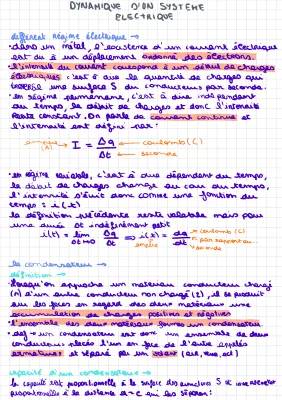 DYNAMIQUE D'UN SYSTEME
ELECTRIQUE
différent régime électrique →
• dans un métal, l'existence d'un courant électrique
est dû à un déplacement ordonné des électrons.
• l'intensité du courant correspond à un débit de charges
électriques c'est à dire la quantité de charges qui
traverse une surface S du conducteur par seconde.
• en régime permanent, c'est à dire indépendant
du temps, le débit de charges et donc l'intensité
reste constant. On parle de courant continue et
l'intensité est défini par :
ampère I = Δq ← coulombs (C)
Δt ← seconde
• en régime variable, c'est à dire dépendant du temps,
le débit de charges change au cours du temps,
l'intensité s'écrit donc comme une fonction du
temps : i(t)
la définition précédente reste valable mais pour
une durée Δt
i(t) = lim Δq ⇒ i(t) = dq → coulombs (C)
Δt→0 Δt dt par rapport au
ampère seconde
le condensateur →
définition →
• lorsqu'on approche un matériau conducteur chargé
(A) d'un autre conducteur non chargé (B), il se produit
sur les faces en regard des deux matériaux une
accumulation de charges positives et négatives
• l'ensemble des deux matériaux forment un condensateur.
• def → un condensateur est donc un ensemble de deux
conducteurs placés l'un en face de l'autre appelés
armatures et séparé par un isolant (air, etc)
capacité d'un condensateur →
la capacité est proportionnelle à la surface des armatures S et inversement
proportionnelle à la distance qui les sépare :